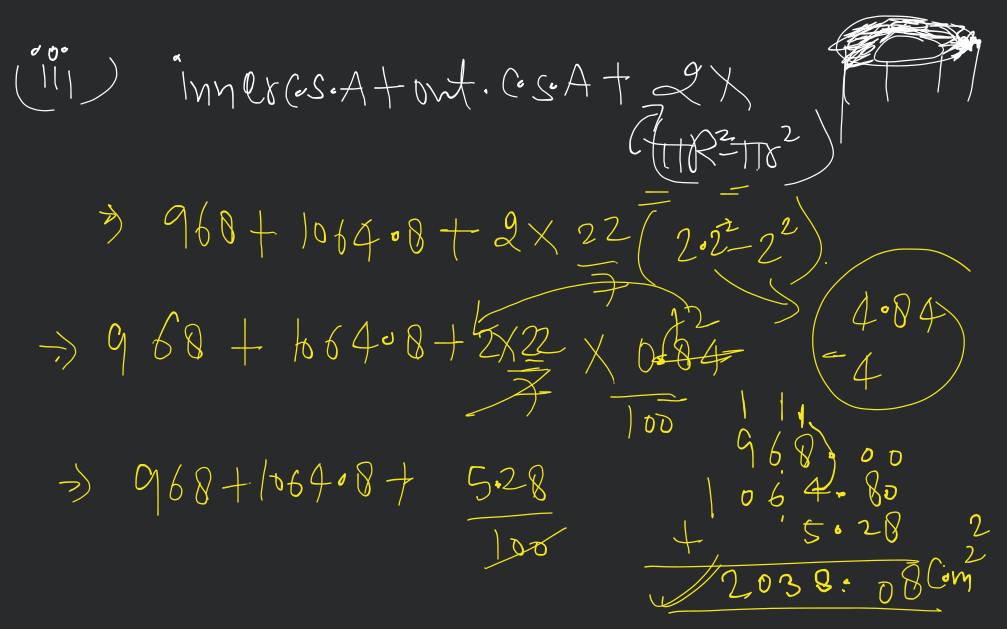 (iii) inner C.S.A + out. C.S.A + 2 x
(πR²-πr²)
=> 968 + 1064.8 + 2 x 22/7 (2.2² - 2²)
4.84
- 4
=> 968 + 1064.8 + 2 x 22/7 x 0.84/100
12
=> 968 + 1064.8 + 5.28/100
1 1 1
968.00
1064.80
+ 5.28
2038.08 Cm²
2